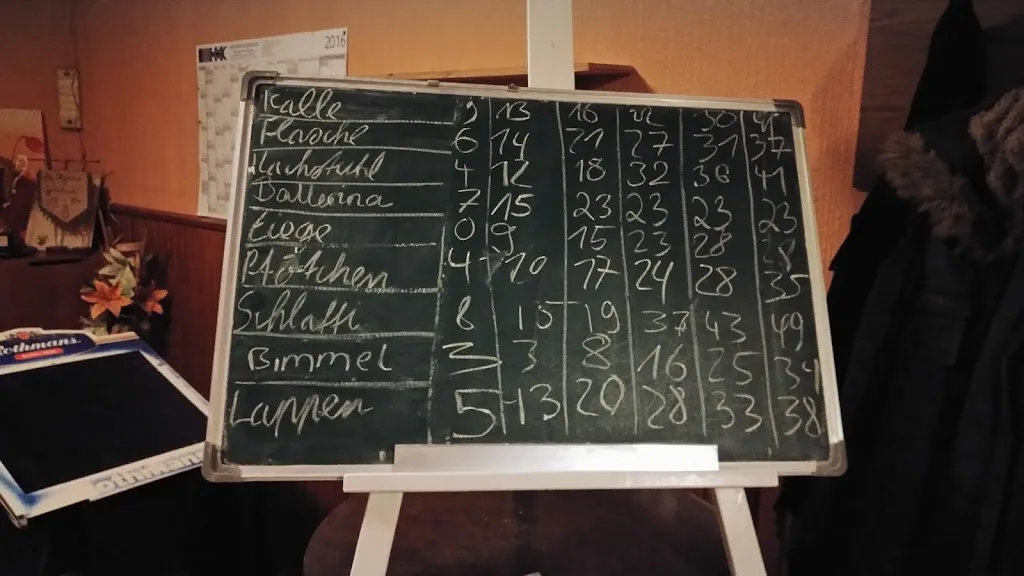 2016
Kalle 9 13 16 22 30
Flasche 6 14 21 27 31 37
Nachtstuhl 4 12 18 32 38 41
Ballerina 7 15 23 23 23 23
Ziege 0 9 15 23 28 28
Pfötchen 4 10 17 24 28 35
Schlaffi 8 15 19 37 43 49
Bimmel 3 8 16 25 34
Lappen 5 13 20 28 33 38
Rothmans